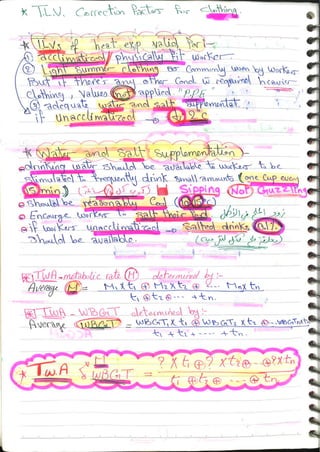 * T.L.V. Correction Factors For Clothing
* TLVs of heat exp valid for:-
① acclimatized, physically fit worker
② Light Summer clothing as commonly worn by workers
But if there's any other Cond is required heavier
Clothing, values not applied "PPE"
③ adequate water and salt supplementat
if Unacclimatized → 2°C
* Water and Salt Supplementation
drinking water should be available to workers to be
stimulated to frequently drink small amounts (one cup every
15 min) Sipping Not Guzzling
Should be reasonably Cool
Encourge workers to salt their food
if workers unacclimatized → Salted drinks 0.1%
Should be available.
* TWA-metabolic rate (M) determined by:-
Average M = M₁xt₁ ⊕ M₂xt₂ ⊕ ... Mnxtn
t₁⊕t₂⊕ ... +tn.
* TWA-WBGT determined by:-
Average WBGT = WBGT₁xt₁ ⊕ WBGT₂xt₂ ⊕...WBGTnxtn
t₁+t₂+....+tn.
* TWA & M WBGT = ?xt₁ ⊕ ?xt₂ ⊕...⊕?xtn
t₁⊕t₂⊕...⊕tn